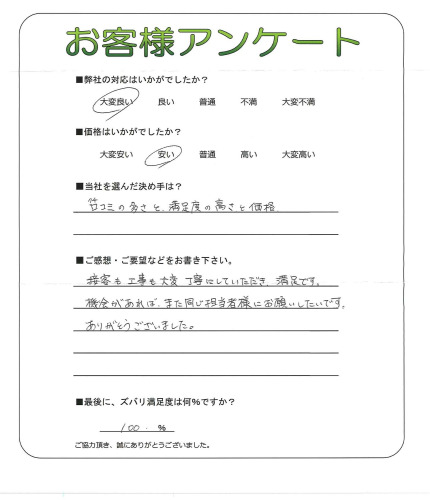 お客様アンケート
■弊社の対応はいかがでしたか？
大変良い 良い 普通 不満 大変不満
■価格はいかがでしたか？
大変安い 安い 普通 高い 大変高い
■当社を選んだ決め手は？
口コミの多さと、満足度の高さと価格
■ご感想・ご要望などをお書き下さい。
接客も工事も大変丁寧にしていただき、満足です。
機会があれば、また同じ担当者様にお願いしたいです。
ありがとうございました。
■最後に、ズバリ満足度は何%ですか？
100 %
ご協力頂き、誠にありがとうございました。